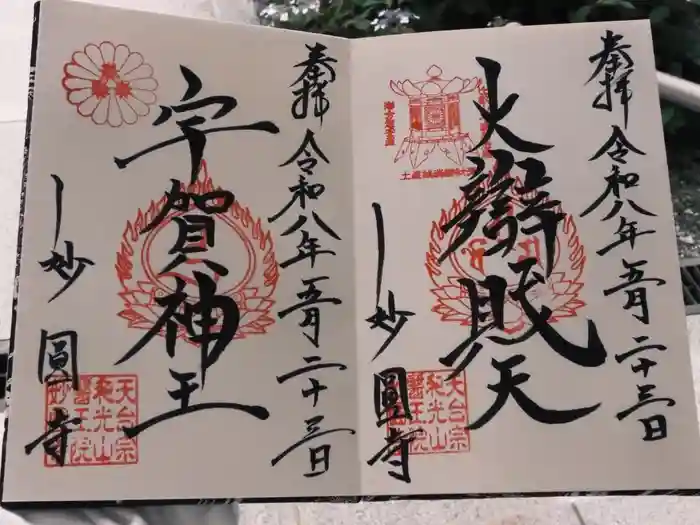 奉拝
令和八年五月二十三日
大辨財天
妙圓寺
天台宗
和光山
醫王院
奉拝
令和八年五月二十三日
宇賀神王
妙圓寺
天台宗
和光山
醫王院
妙